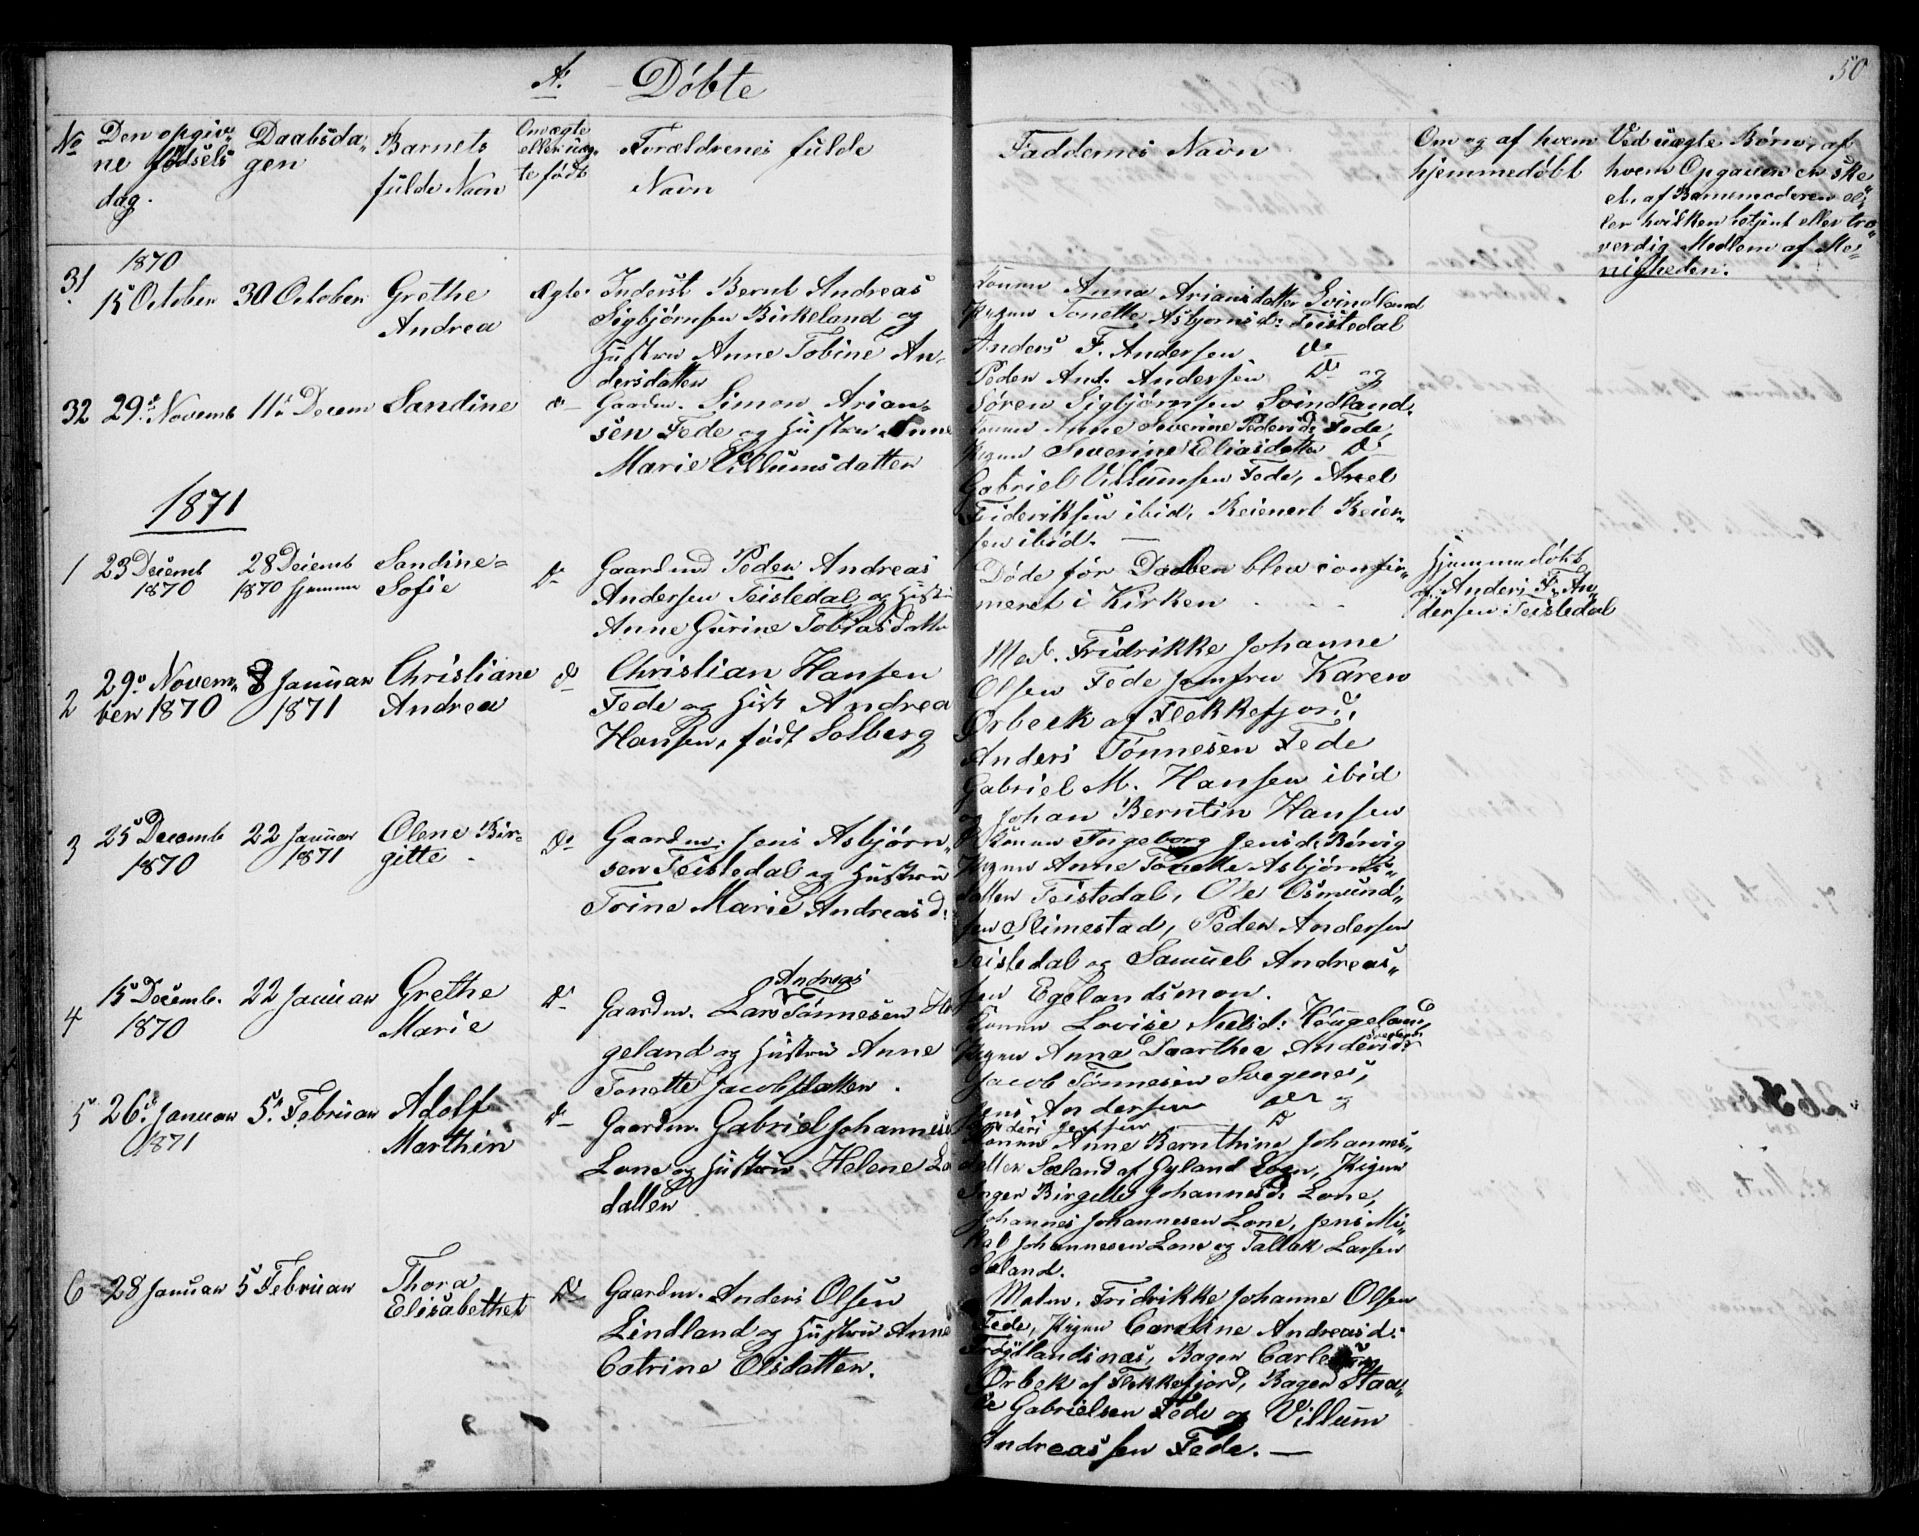 A. Døbte
50
No
Den opgiv-
ne fødsels
dag.
Daabsda-
gen
Barnets
fulde Navn
Om ægte
eller uæg-
te født
Forældrenes fulde
Navn
Faddernes Navn
Om og af hvem
hjemmedøbt
Ved uægte Børn, af
hvem Opgaven er ske
et, af Barnemoderen el-
ler hvilken betjent eller tro-
værdig Medlem af Me-
nigheden.
31
1870
15 October
30 October
Grethe
Andrea
Ægte
Inderst Bernt Andreas
Sigbjørnsen Birkeland og
Hustru Anne Tobine An-
dersdatter
Konen Anna Ariansdatter Svindland
Pigen Tonette Asbjørnsd: Feistedal
Anders F. Andersen Do
Peder And. Andersen Do og
Søren Sigbjørnsen Svindland.
32
29. Novemb
11 Decem
Sandine
do
Gaardm. Simon Arian-
sen Fede og Hustru Anne
Marie Villumsdatter
Konen Anne Severine Pedersd: Fede,
Pigen Severine Eliasdatter Do
Gabriel Villumsen Fede, Axel
Frideriksen ibid, Reienert Reier-
sen ibid. —
1871
1
23 Decemb
1870
28 Decemb
1870 Hjemme
Sandine-
Sofie
Do
Gaardmd Peder Andreas
Andersen Feistedal og Hust
Anne Gurine Tobiasdatter
Døde før Daaben blev confir-
meret i Kirken
Hjemmedøbt
af Anders F. An-
dersen Feistedal
2
29. Novem-
ber 1870
8 Januar
1871
Christiane
Andrea
Do
Christian Hansen
Fede og Hust Andrea
Hansen, født Solberg
Mad. Fridrikke Johanne
Olsen Fede Jomfru Karen
Ørbeck af Flekkefjord,
Anders Tønnesen Fede
Gabriel M. Hansen ibid
og Johan Berntin Hansen
3
25 Decemb
1870
22 Januar
1871
Olene Bir-
gitte
Do
Gaardm. Jens Asbjørn-
sen Feistedal og Hustru
Trine Marie Andreasd:
Konen Ingeborg Jensd: Rørvig
Pigen Anne Tonette Asbjørns-
datter Feistedal, Ole Osmund-
sen Slimestad, Peder Andersen
Feistedal og Samuel Andreas-
sen Egelandsmon.
4
15 Decemb.
1870
22 Januar
Grethe
Marie
Do
Andreas
Gaardm. Lars Tønnesen
geland og Hustru Anne
Tonette Jacobsdatter.
Konen Lovise Nielsd: Høugeland
Pigen Anna Daarthea Andersd:
Jacob Tønnesen Svegenes,
Jens Andersen og
5
26. Januar
1871
5. Februar
Adolf
Marthin
do
Gaardm. Gabriel Johannes
Lone og Hustru Helene
datter
Konen Anne Bernthine Johannes-
datter Sæland af Gyland Sogn, Pigen
Inger Birgitte Johannesd: Lone,
Johannes Johannesen Lone, Jens Mi-
kal Johannesen Lone og Tallak Larsen
Sæland.
6
28 Januar
5 Februar
Thora
Elisabethet
Do
Gaardm. Anders Olsen
Lindland og Hustru Anne
Catrine Elisdatter.
Madm. Fridrikke Johanne Olsen
Fede, Pigen Caroline Andreasd:
Frøytlandsnæs, Bager Carl
Ørbek af Flekkefjord, Bager Staa-
le Gabrielsen Fede og Villum
Andreassen Fede. —